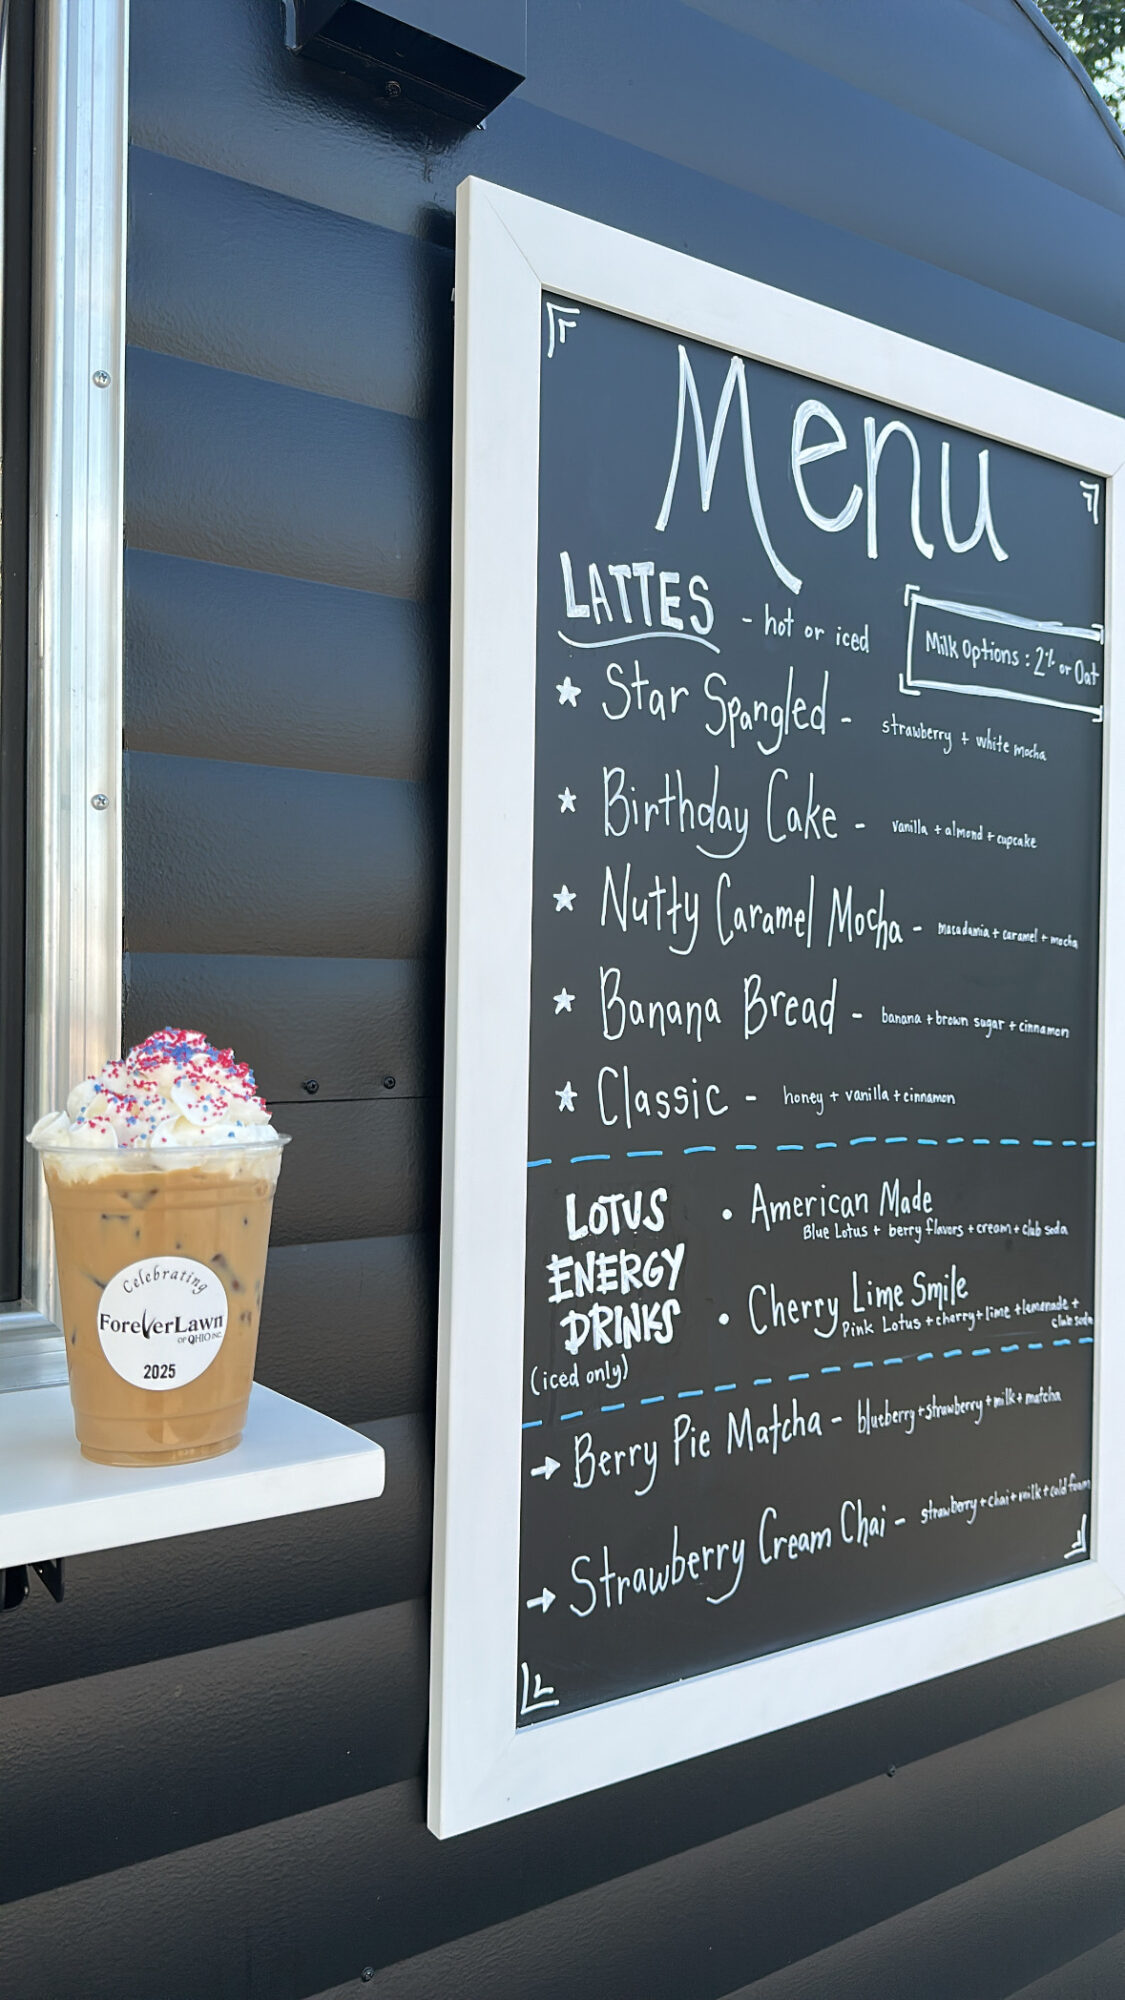 Menu
LATTES - hot or iced
Milk Options: 2% or Oat
Star Spangled - strawberry + white mocha
Birthday Cake - vanilla + almond + cupcake
Nutty Caramel Mocha - macadamia + caramel + mocha
Banana Bread - banana + brown sugar + cinnamon
Classic - honey + vanilla + cinnamon
LOTUS
ENERGY
DRINKS
(iced only)
• American Made
Blue Lotus + berry flavors + cream + club soda
• Cherry Lime Smile
Pink Lotus + cherry + lime + lemonade +
club soda
→ Berry Pie Matcha - blueberry + strawberry + milk + matcha
→ Strawberry Cream Chai - strawberry + chai + milk + cold foam
Celebrating
ForeverLawn
OF OHIO INC.
2025